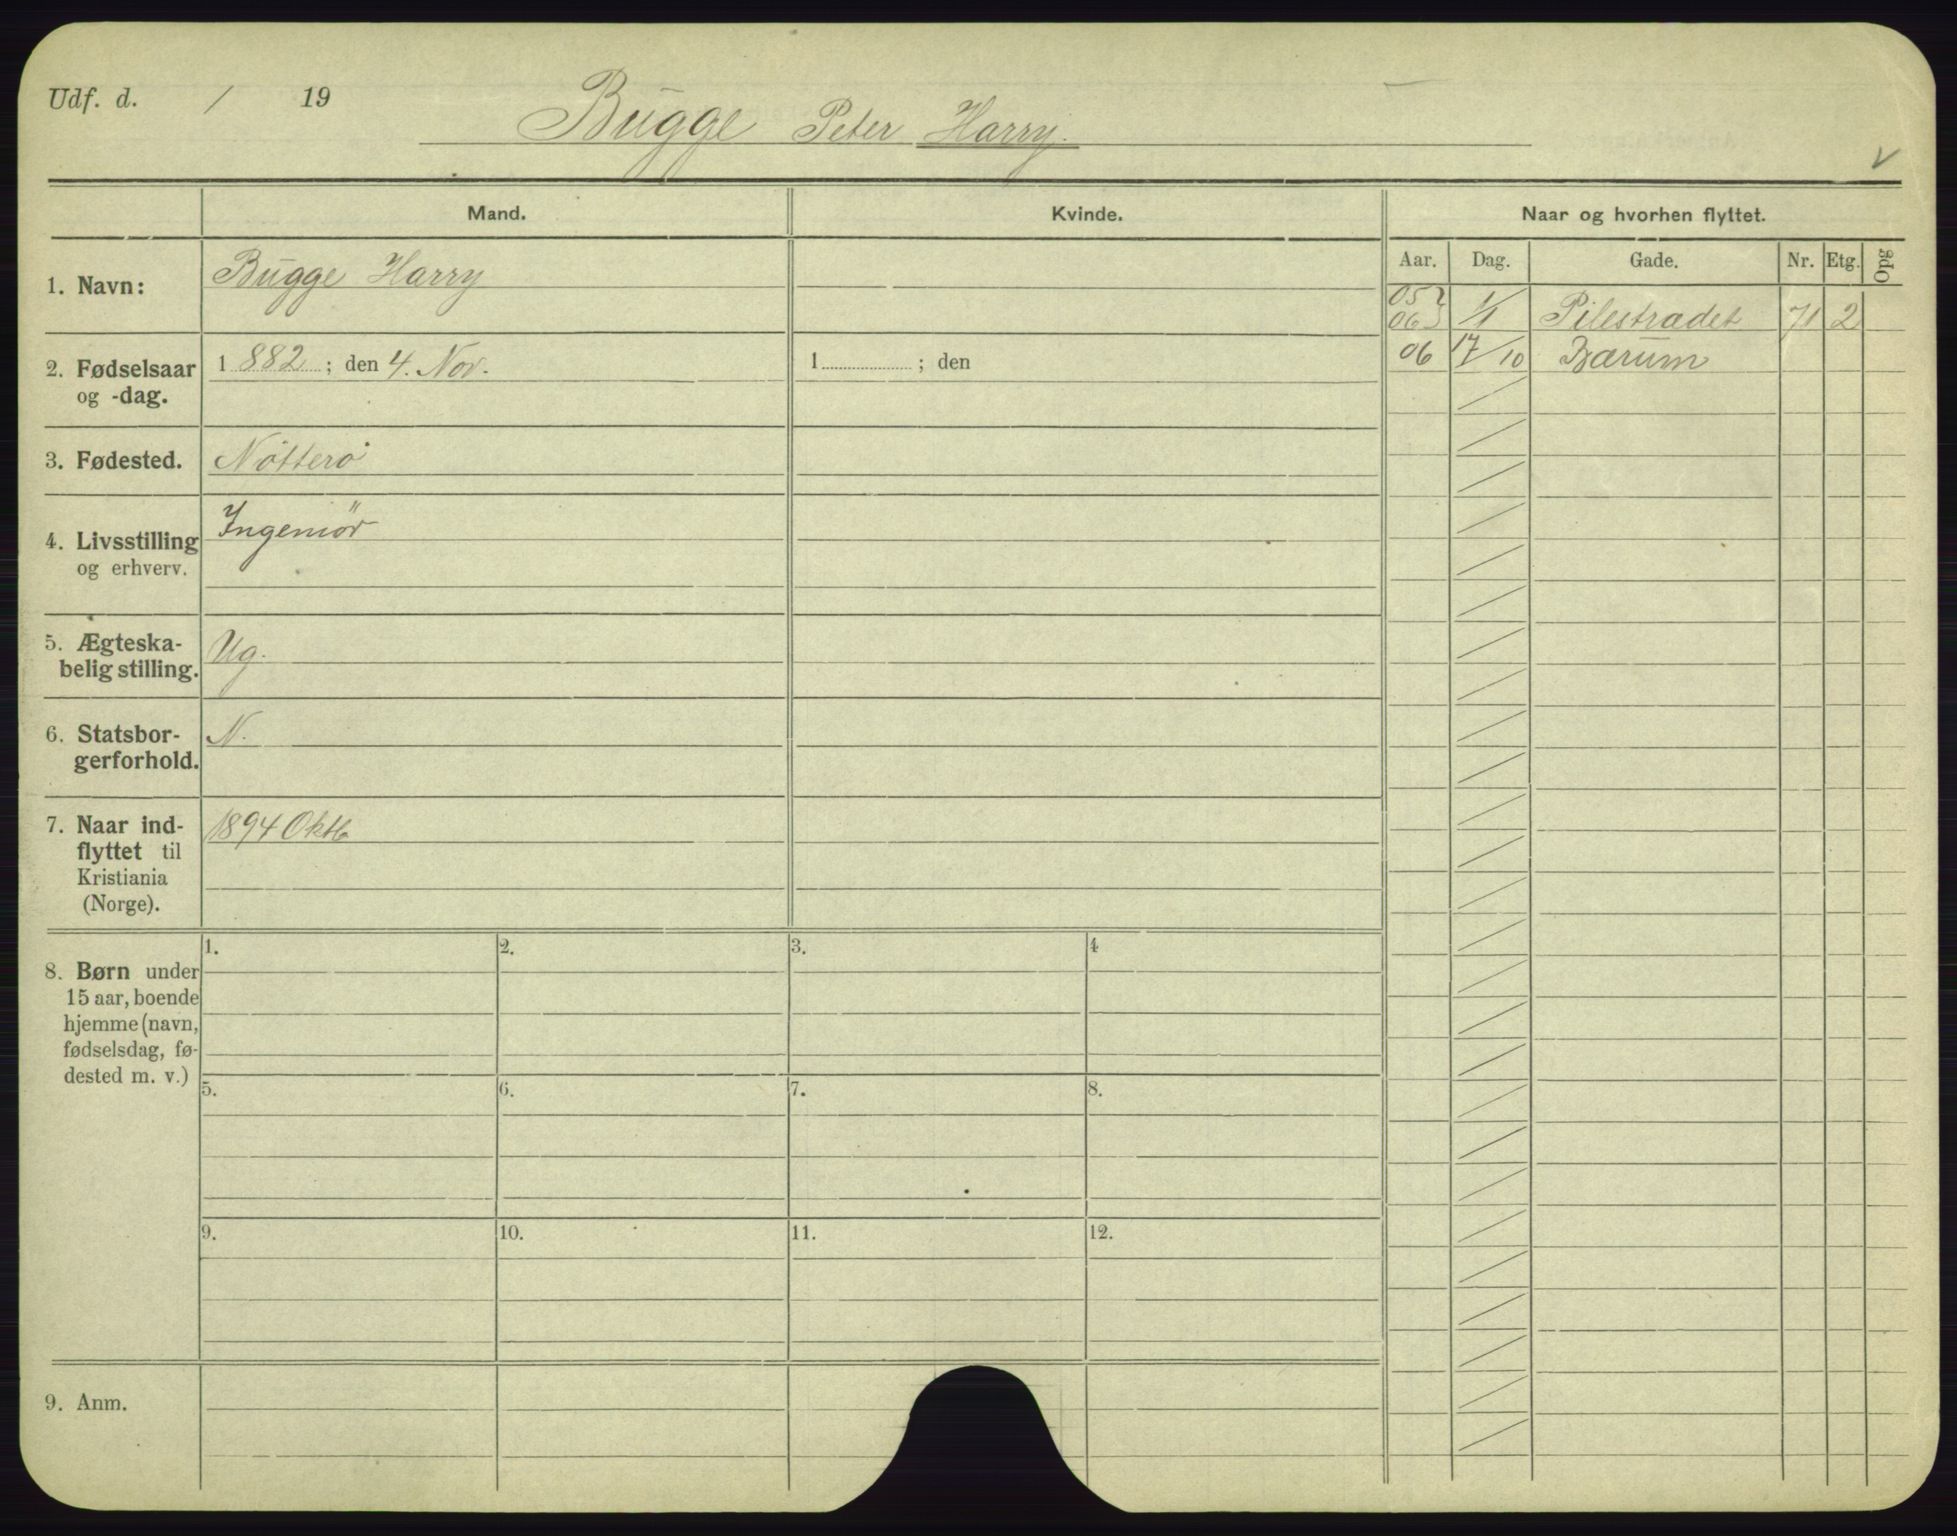 Udf. d. / 19
Bugge Peter Harry.
Mand.
Kvinde.
Naar og hvorhen flyttet.
Aar. Dag. Gade. Nr. Etg. Opg
1. Navn: Bugge Harry
05
06 1/1 Pilestrædet 71 2
06 17/10 Bærum
2. Fødselsaar og -dag. 1882 ; den 4. Nov. 1 ; den
3. Fødested. Nötterö
4. Livsstilling og erhverv. Ingeniör
5. Ægteska-
belig stilling. Ug.
6. Statsbor-
gerforhold. N.
7. Naar ind-
flyttet til
Kristiania
(Norge). 1894 Oktb
8. Børn under
15 aar, boende
hjemme (navn,
fødselsdag, fø-
dested m. v.)
1. 2. 3. 4
5. 6. 7. 8.
9. 10. 11. 12.
9. Anm.